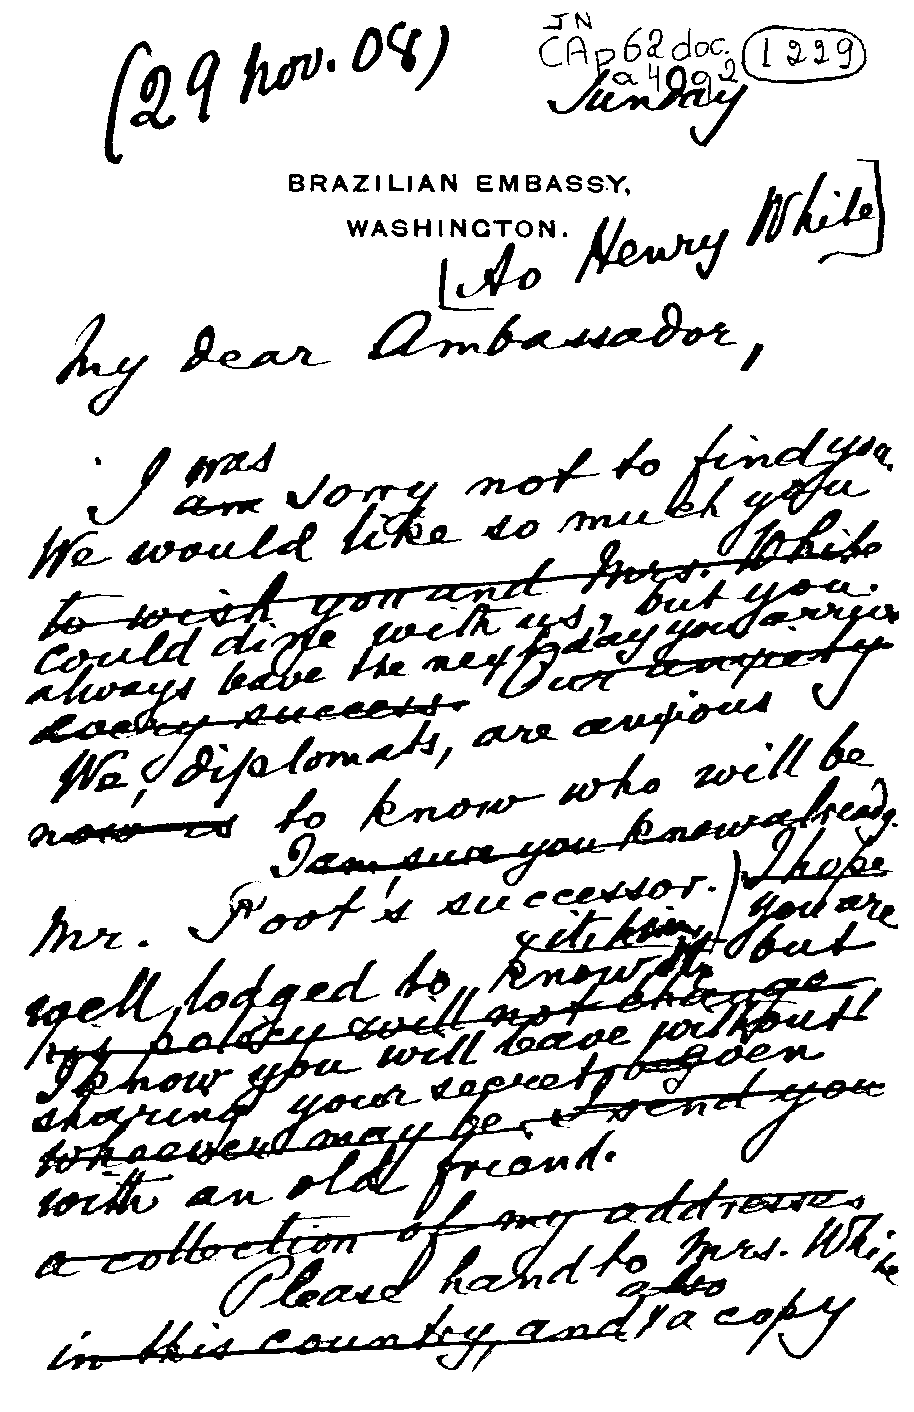 (29 nov. 08)
JN
CAp62 doc. 1229
a4g2
Sunday
BRAZILIAN EMBASSY,
WASHINGTON.
[To Henry White]
My dear Ambassador,
was
I am sorry not to find you.
We would like so much you
to wish you and Mrs. White
could dine with us, but you
always leave the next day you arrive
every success. Our anxiety
We, diplomats, are anxious
now is to know who will be
I am sure you know already.
Mr. Root's successor. I hope
you are
it, him,
well lodged to know it, but
his policy will not change
I know you will leave without
sharing your secret, even
whoever may be. I send you
with an old friend.
a collection of my addresses
Please hand to Mrs. White
also
in this country, and a copy